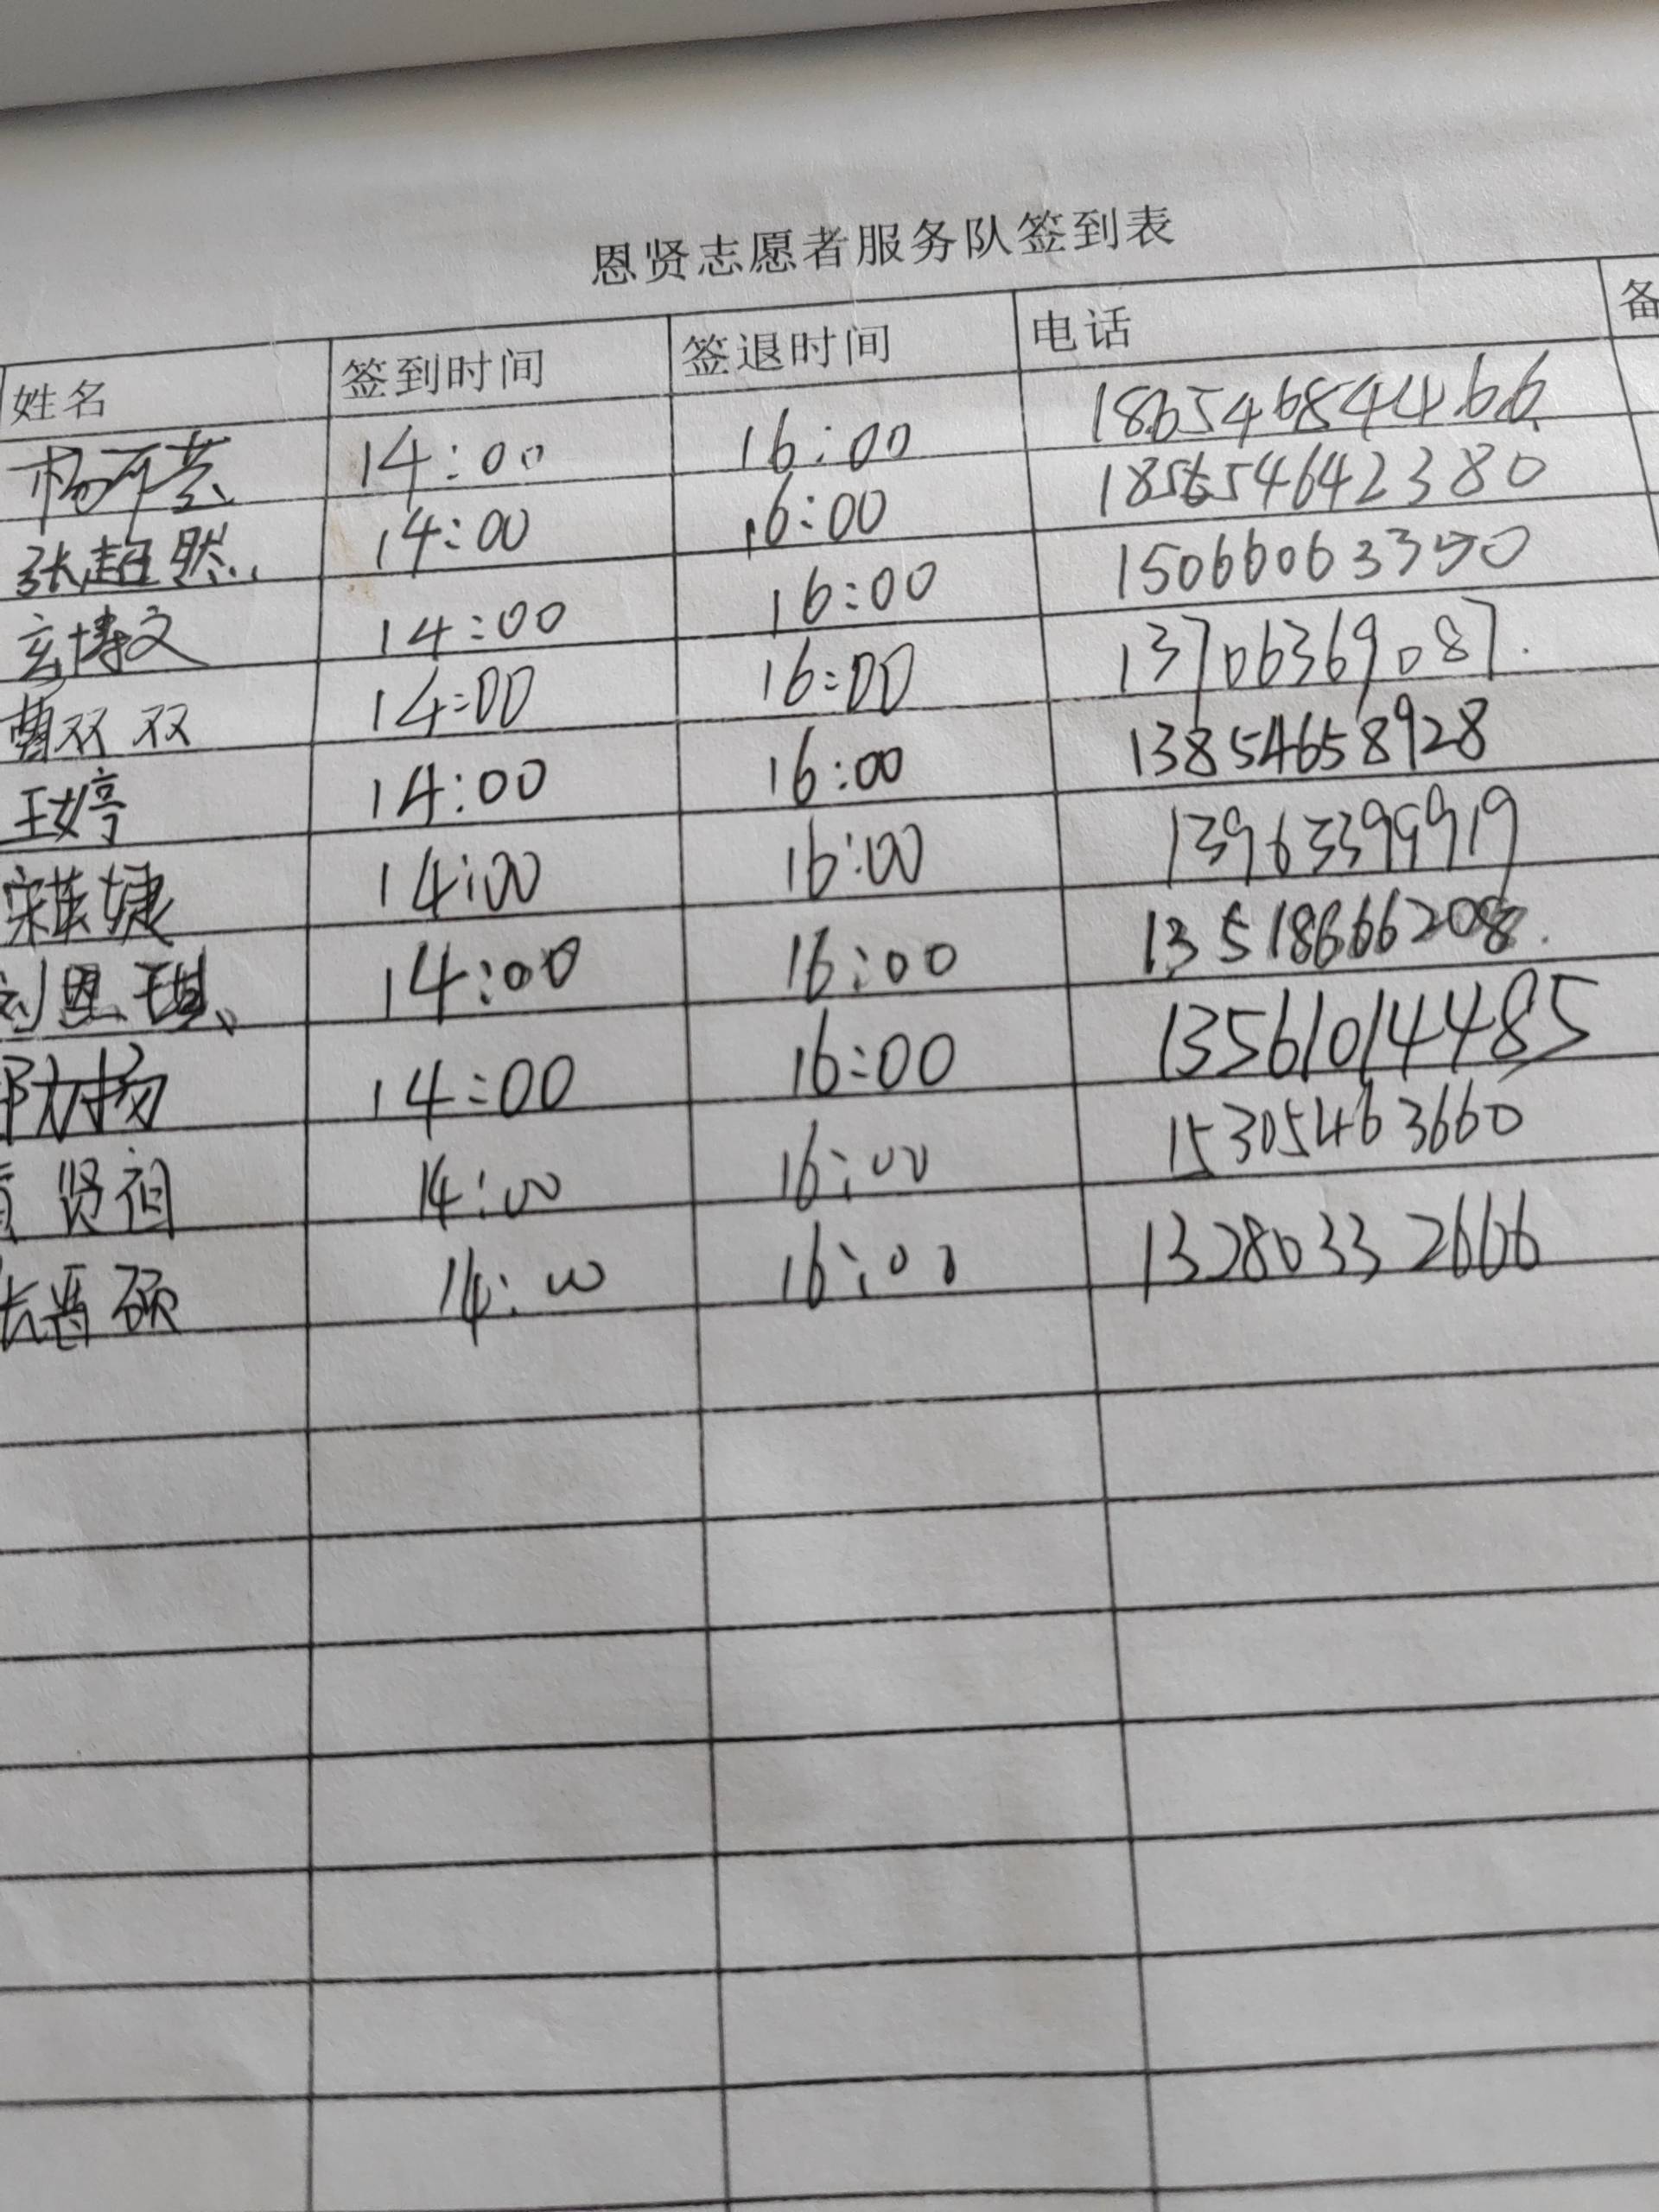 恩贤志愿者服务队签到表
姓名 签到时间 签退时间 电话 备
14:00 16:00
张超然 14:00 16:00
玄博文 14:00 16:00
曹双双 14:00 16:00 13706369087
王婷 14:00 16:00 13854658928
14:00 16:00 13963399919
刘恩琪 14:00 16:00
扬 14:00 16:00 13561014485
贤祖 14:00 16:00 15305463660
晋硕 14:00 16:00 13280332606